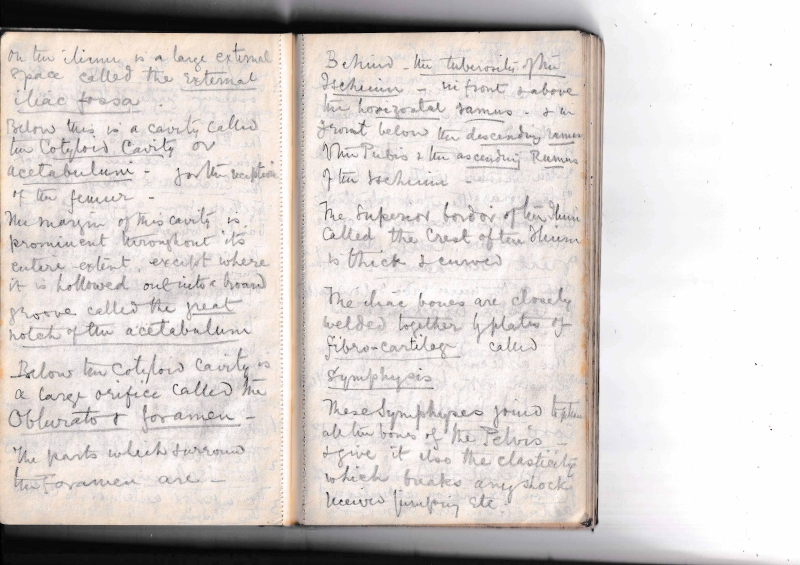 On the ilium is a large external
space called the external
iliac fossa.
Below this is a cavity called
the Cotyloid Cavity or
acetabulum - for the reception
of the femur -
The margin of this cavity is
prominent throughout its
entire extent except where
it is hollowed out into a broad
groove called the great
notch of the acetabulum
Below the Cotyloid Cavity is
a large orifice called the
Obturator foramen -
The parts which surround
the Foramen are -
Behind - the tuberosity of the
Ischium - in front & above
the horizontal ramus - & in
front below the descending ramus
of the Pubis & the ascending Ramus
of the Ischium -
The Superior border of the Ilium
called the Crest of the Ilium
is thick & curved
The iliac bones are closely
welded together by plates of
fibro-cartilage called
Symphysis
These Symphyses joined together
all the bones of the Pelvis -
& give it also the elasticity
which breaks any shock
received jumping etc.